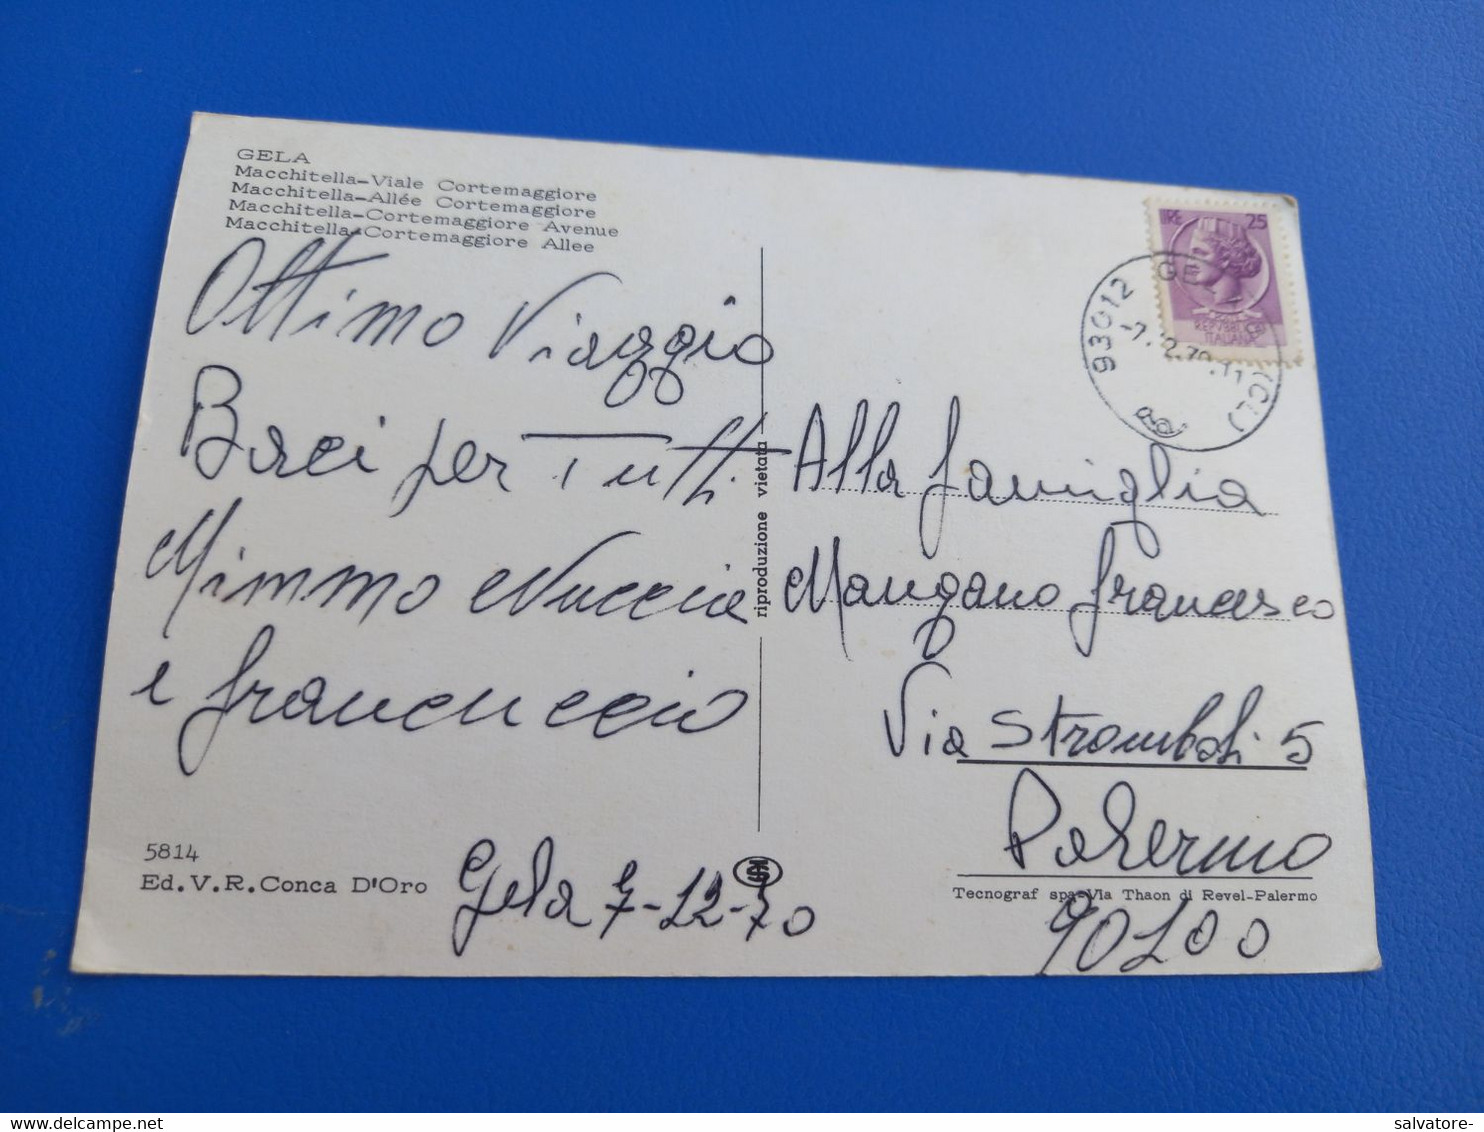 GELA
Macchitella-Viale Cortemaggiore
Macchitella-Allée Cortemaggiore
Macchitella-Cortemaggiore Avenue
Macchitella-Cortemaggiore Allee
Ottimo Viaggio
Baci per Tutti
Mimmo Nuccia
e Francuccio
Gela 7-12-70
5814
Ed.V.R.Conca D'Oro
riproduzione vietata
LIRE 25
REPVBBLICA
ITALIANA
93012 GELA (CL)
-7.12.70.11
Alla famiglia
Mangano Francesco
Via Stromboli 5
Palermo
90100
Tecnograf spa-Via Thaon di Revel-Palermo
salvatore-